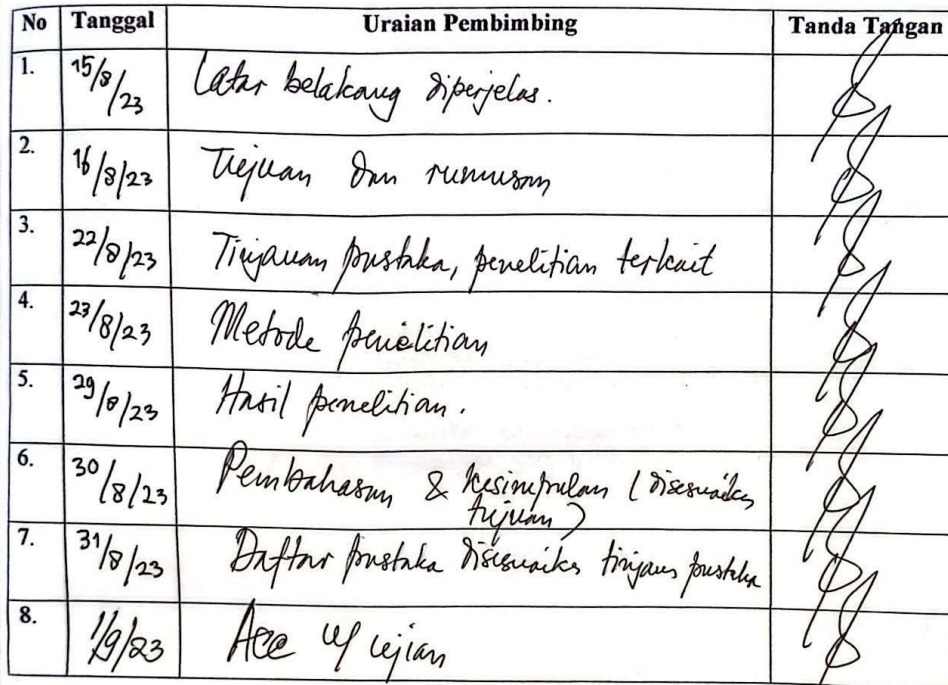 No Tanggal Uraian Pembimbing Tanda Tangan
1. 15/8/23 Latar belakang diperjelas.
2. 16/8/23 Tujuan dan rumusan
3. 22/8/23 Tinjauan pustaka, penelitian terkait
4. 23/8/23 Metode penelitian
5. 29/8/23 Hasil penelitian.
6. 30/8/23 Pembahasan & kesimpulan (disesuaikan
tujuan)
7. 31/8/23 Daftar pustaka disesuaikan tinjauan pustaka
8. 1/9/23 Acc u/ ujian